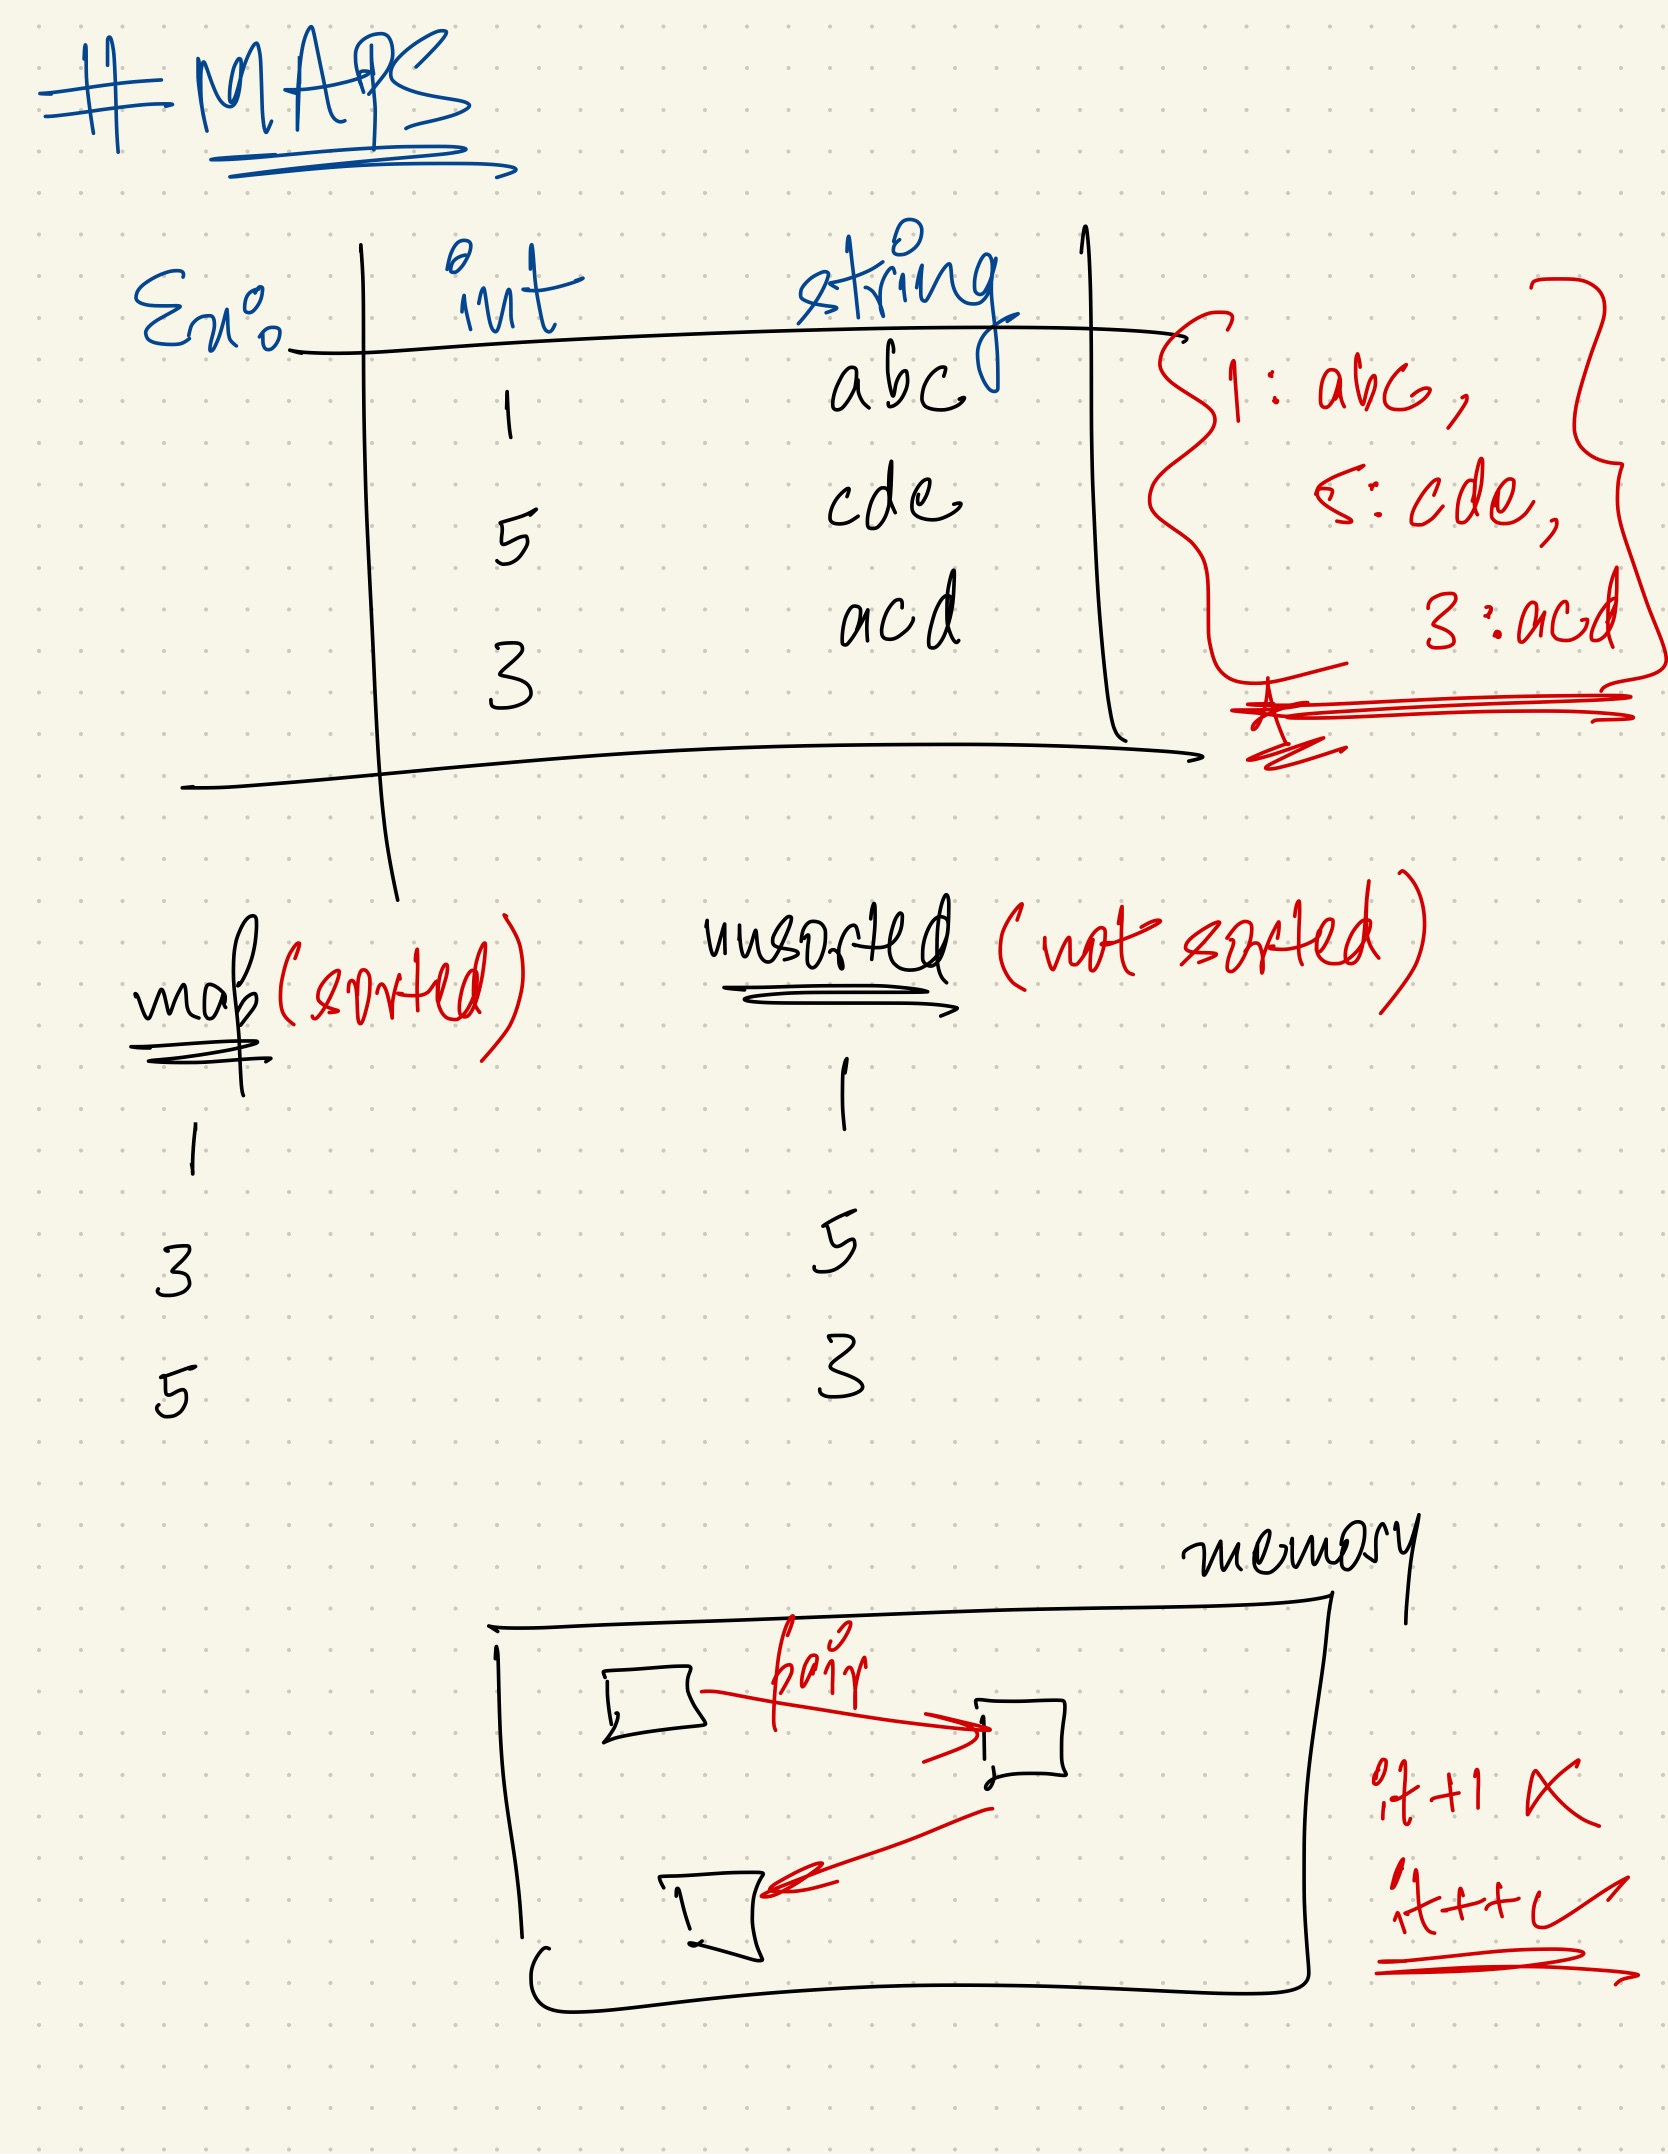 # MAPS
Ex: int string
1 abc
5 cde
3 acd
{ 1: abc,
5: cde,
3: acd }
map (sorted)
1
3
5
unsorted (not sorted)
1
5
3
memory
pair
it+1 ×
it++ ✓